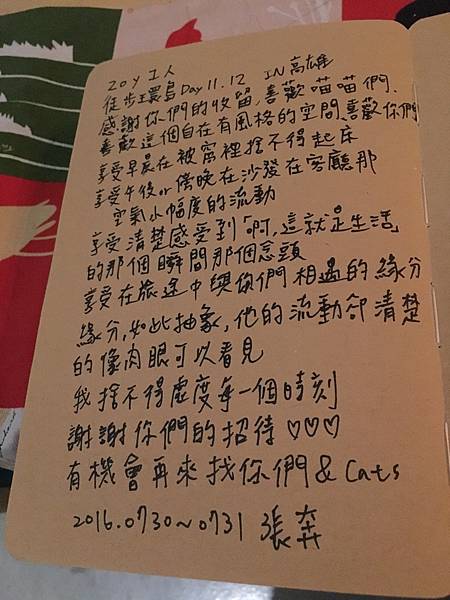 20y 1人
徒步環島Day11.12 IN高雄
感謝你們的收留,喜歡喵喵們、
喜歡這個自在有風格的空間、喜歡你們
享受早晨在被窩裡捨不得起床
享受午後or傍晚在沙發在客廳那
空氣小幅度的流動
享受清楚感受到「啊,這就是生活」
的那個瞬間那個念頭
享受在旅途中與你們相遇的緣分
緣分,如此抽象,他的流動卻清楚
的像肉眼可以看見
我捨不得虛度每一個時刻
謝謝你們的招待♡♡♡
有機會再來找你們&Cats
2016.0730~0731 張奔